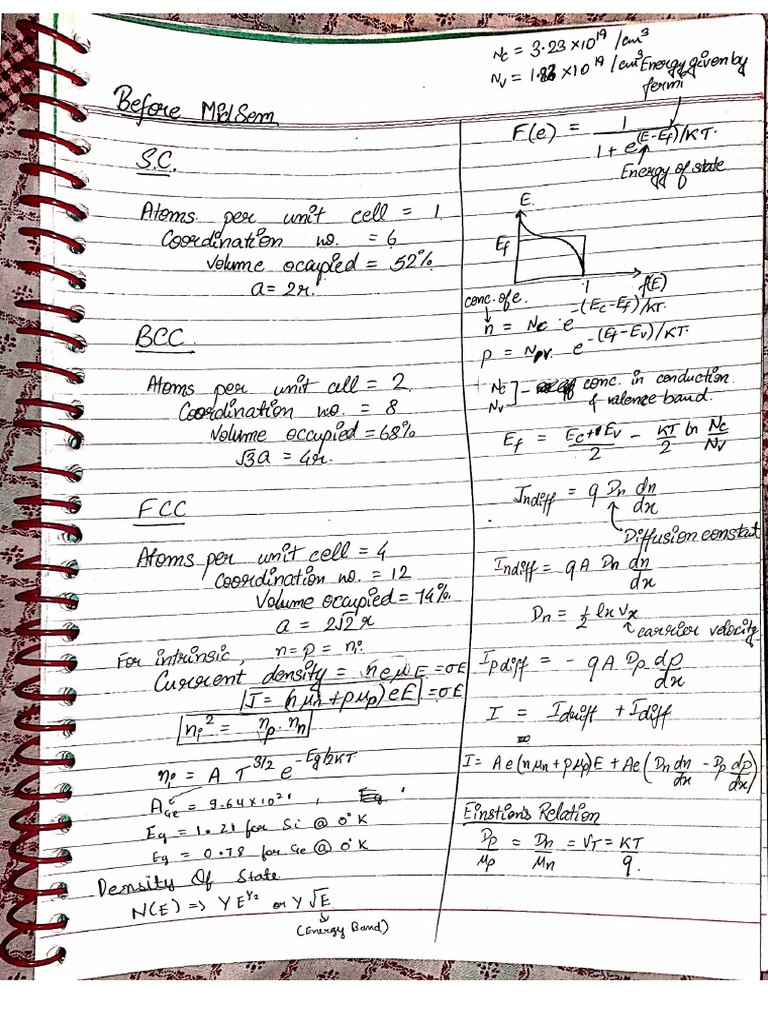 Nc = 3.23 × 10^19 /cm³
Nv = 1.83 × 10^19 /cm³
Before MidSem
S.C.
Atoms per unit cell = 1
Coordination no. = 6
Volume occupied = 52%
a = 2r.
BCC
Atoms per unit cell = 2
Coordination no. = 8
Volume occupied = 68%
√3a = 4r.
FCC
Atoms per unit cell = 4
Coordination no. = 12
Volume occupied = 74%.
a = 2√2 r
For intrinsic, n = p = ni
Current density = neμE = σE
J = (nμn + pμp)eE = σE
ni² = np · nn
ni = A T^3/2 e^-Eg/2KT
AGe = 9.64×10^21 , Eg
Eg = 1.21 for Si @ 0°K
Eg = 0.78 for Ge @ 0°K
Density Of State
N(E) => γE^1/2 or γ√E
(Energy Band)
Energy given by
fermi
F(e) = 1 / 1 + e^(E-Ef)/KT.
Energy of state
E
Ef
1
f(E)
conc. of e.
n = Nc · e^-(Ec-Ef)/KT.
p = Npv. e^-(Ef-Ev)/KT.
Nc
Nv ] - conc. in conduction
& valence band.
Ef = Ec + Ev / 2 - KT/2 ln Nc/Nv
Jndiff = q Dn dn/dx
Diffusion constant
Indiff = qA Dn dn/dx
Dn = 1/2 lx vx
carrier velocity
Ipdiff = - qA Dp dp/dx
I = Idrift + Idiff
I = Ae(nμn + pμp)E + Ae(Dn dn/dx - Dp dp/dx)
Einstion's Relation
Dp/μp = Dn/μn = VT = KT/q.